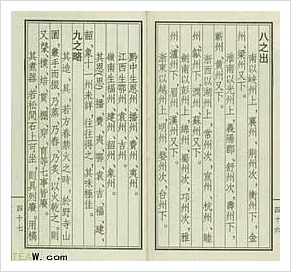 八之出
南以峽州上，襄州、荊州次，衡州下，金
州、梁州又下。
淮南以光州上，義陽郡、舒州次，壽州下，
蘄州、黃州又下。
浙西以湖州上，常州次，宣州、杭州、睦
州、歙州下，潤州、蘇州又下。
劍南以彭州上，綿州、蜀州次，邛州次，雅
州、瀘州下，眉州、漢州又下。
浙東以越州上，明州、婺州次，台州下。
四十六
黔中生恩州、播州、費州、夷州。
江西生鄂州、袁州、吉州。
嶺南生福州、建州、韶州、象州。
其恩、播、費、夷、鄂、袁、吉、福、建、
韶、象十一州未詳，往往得之，其味極佳。
九之略
其造、具，若方春禁火之時，於野寺山
園，叢手而掇，乃蒸，乃舂，乃，以火乾之，則
又棨、撲、焙、貫、棚、穿、育等七事皆廢。
其煮器，若松間石上可坐，則具列廢。用槁
四十七
TEAW.com